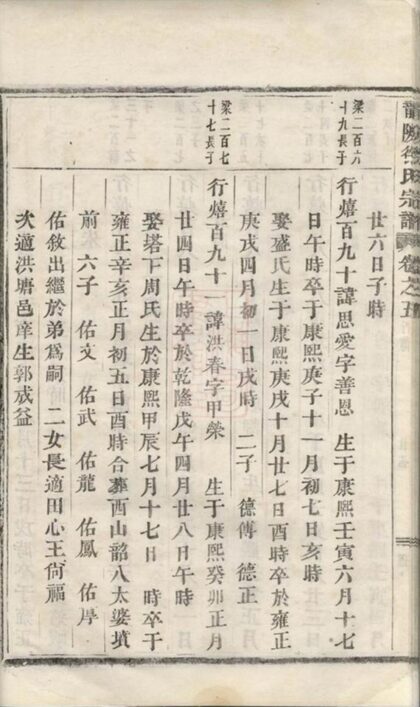 氏宗譜 卷之五
廿六日子時
梁二百六
十九長子
行熺百九十諱思愛字善恩 生于康熙壬寅六月十七
日午時卒于康熙庚子十一月初七日亥時
娶盛氏生于康熙庚戌十月廿七日酉時卒於雍正
庚戌四月初一日戌時 二子 德傅 德正
梁二百七
十七長子
行熺百九十一諱洪春字甲榮 生于康熙癸卯正月
廿四日午時卒於乾隆戊午四月廿八日午時
娶塔下周氏生於康熙甲辰七月十七日 時卒于
雍正辛亥正月初五日酉時合葬西山韶八太婆墳
前 六子 佑文 佑武 佑龍 佑鳳 佑厚
佑敘出繼於弟爲嗣 二女長適田心王尙福
次適洪塘邑庠生郭成益